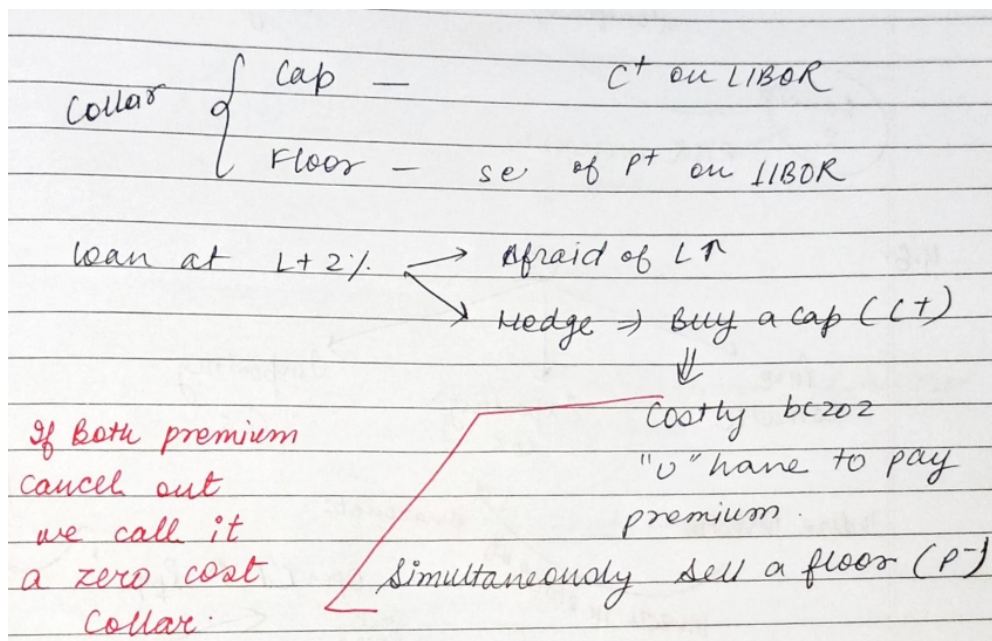 Collar { Cap — C⁺ on LIBOR
Floor — se of P⁺ on LIBOR
loan at L+2% → Afraid of L↑
→ Hedge ⇒ Buy a cap (C+)
⇓
Costly bcz
"U" have to pay
premium.
Simultaneously sell a floor (P⁻)
If Both premium
cancel out
we call it
a zero cost
Collar.